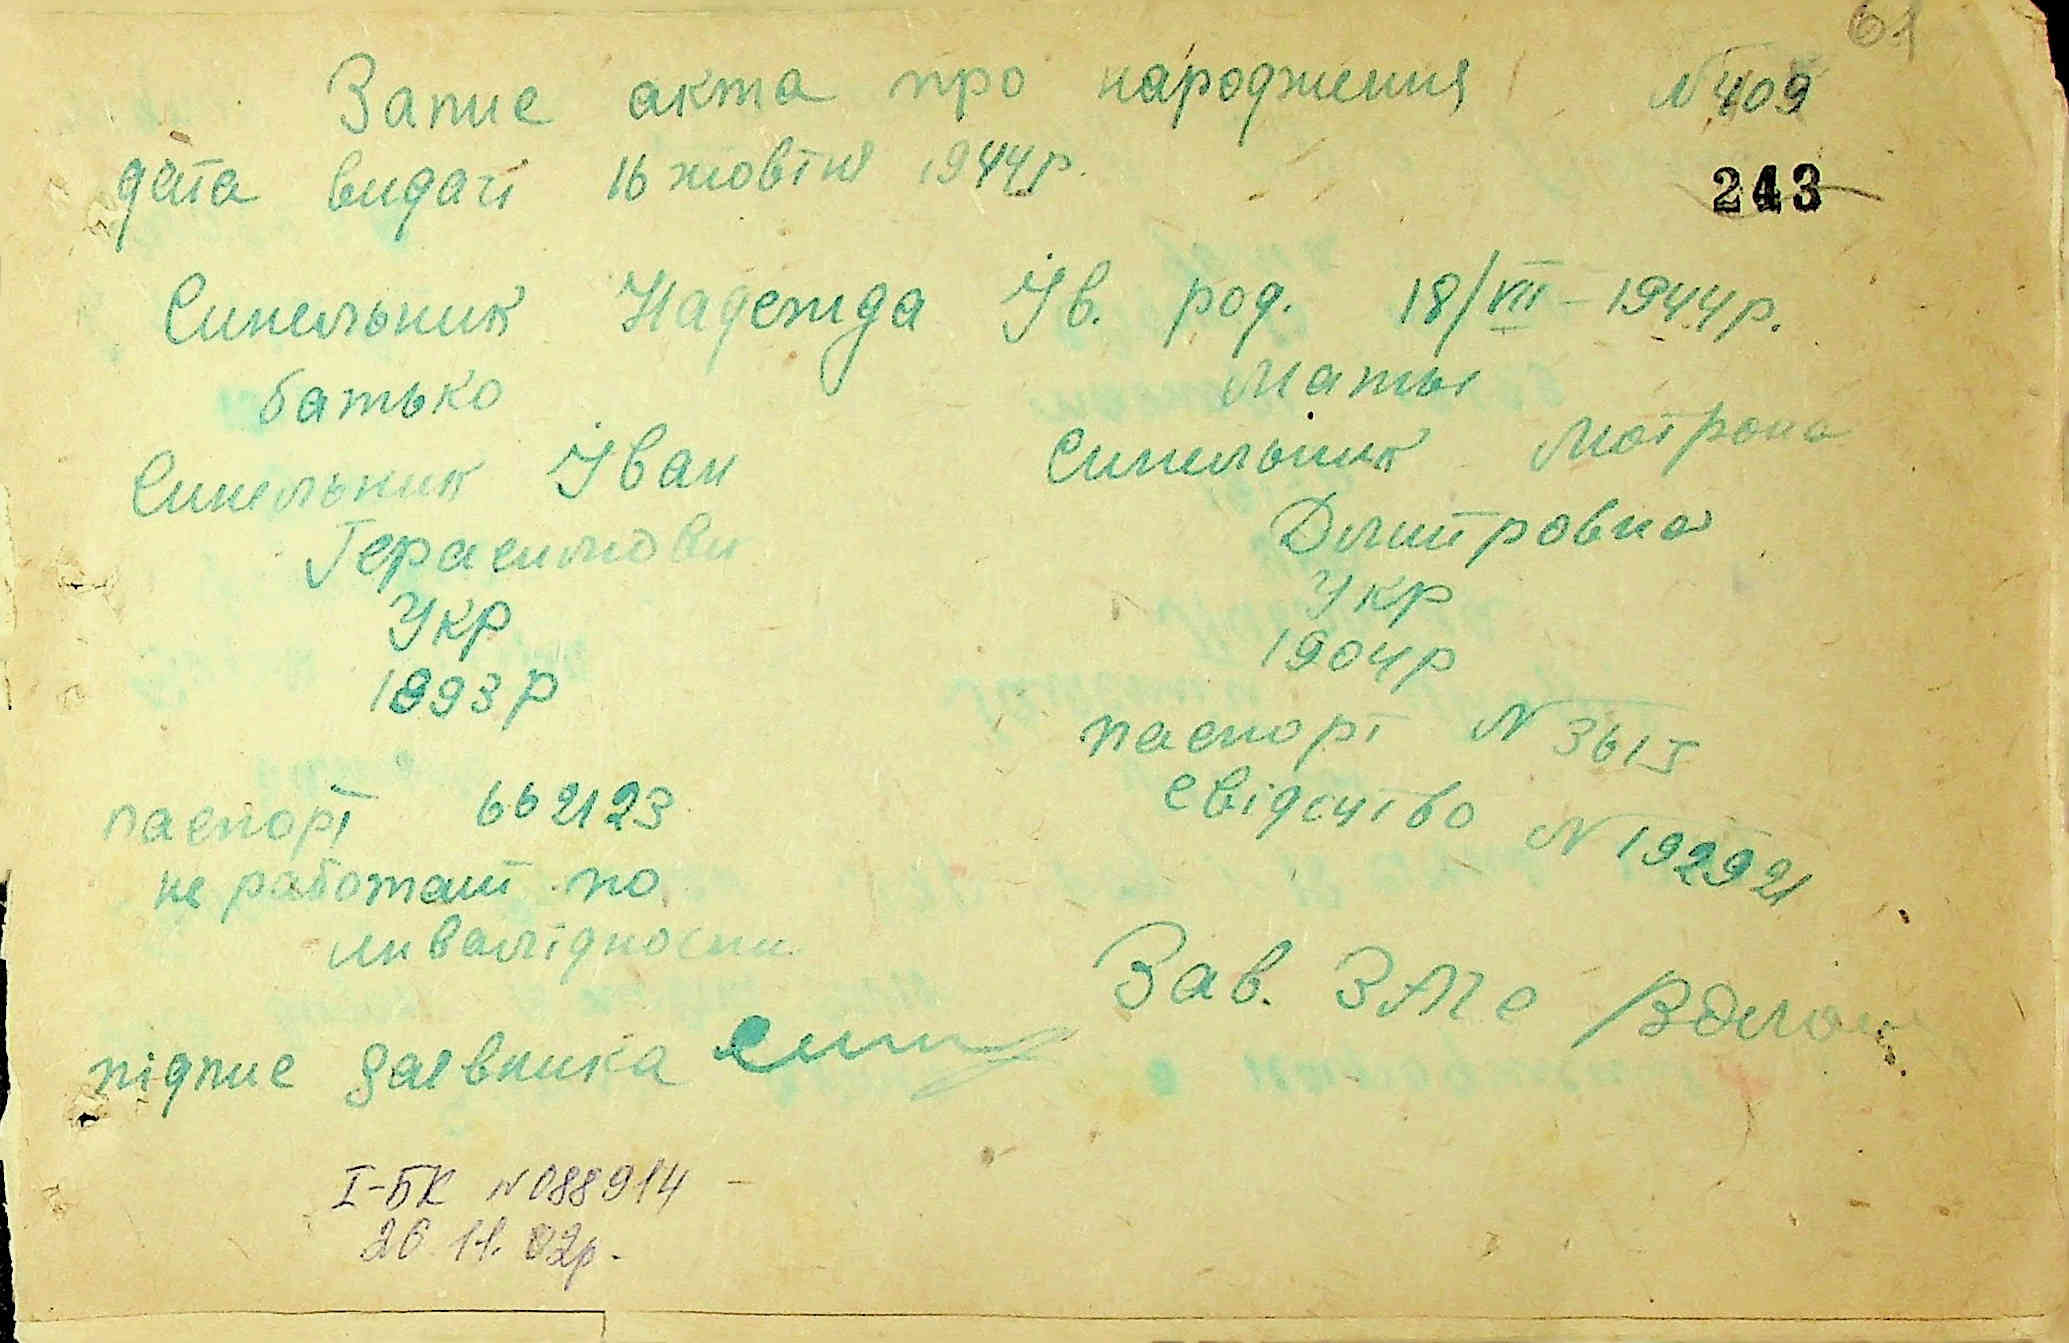 61
Запис акта про народження N 409
дата видачі 16 жовтня 1944р.
243
Синельник Надежда Ів. род. 18/VII – 1944р.
батько
Синельник Іван
Герасимови
Укр
1893р
паспорт 662123
не работаит по
инвалідности
підпис заевника
Маты
Синельник Мотрона
Дмитровна
Укр
1904р
паспорт N 3615
свідоцтво N 192921
Зав. ЗАГС
I-БК N 088914
26.11.02р.